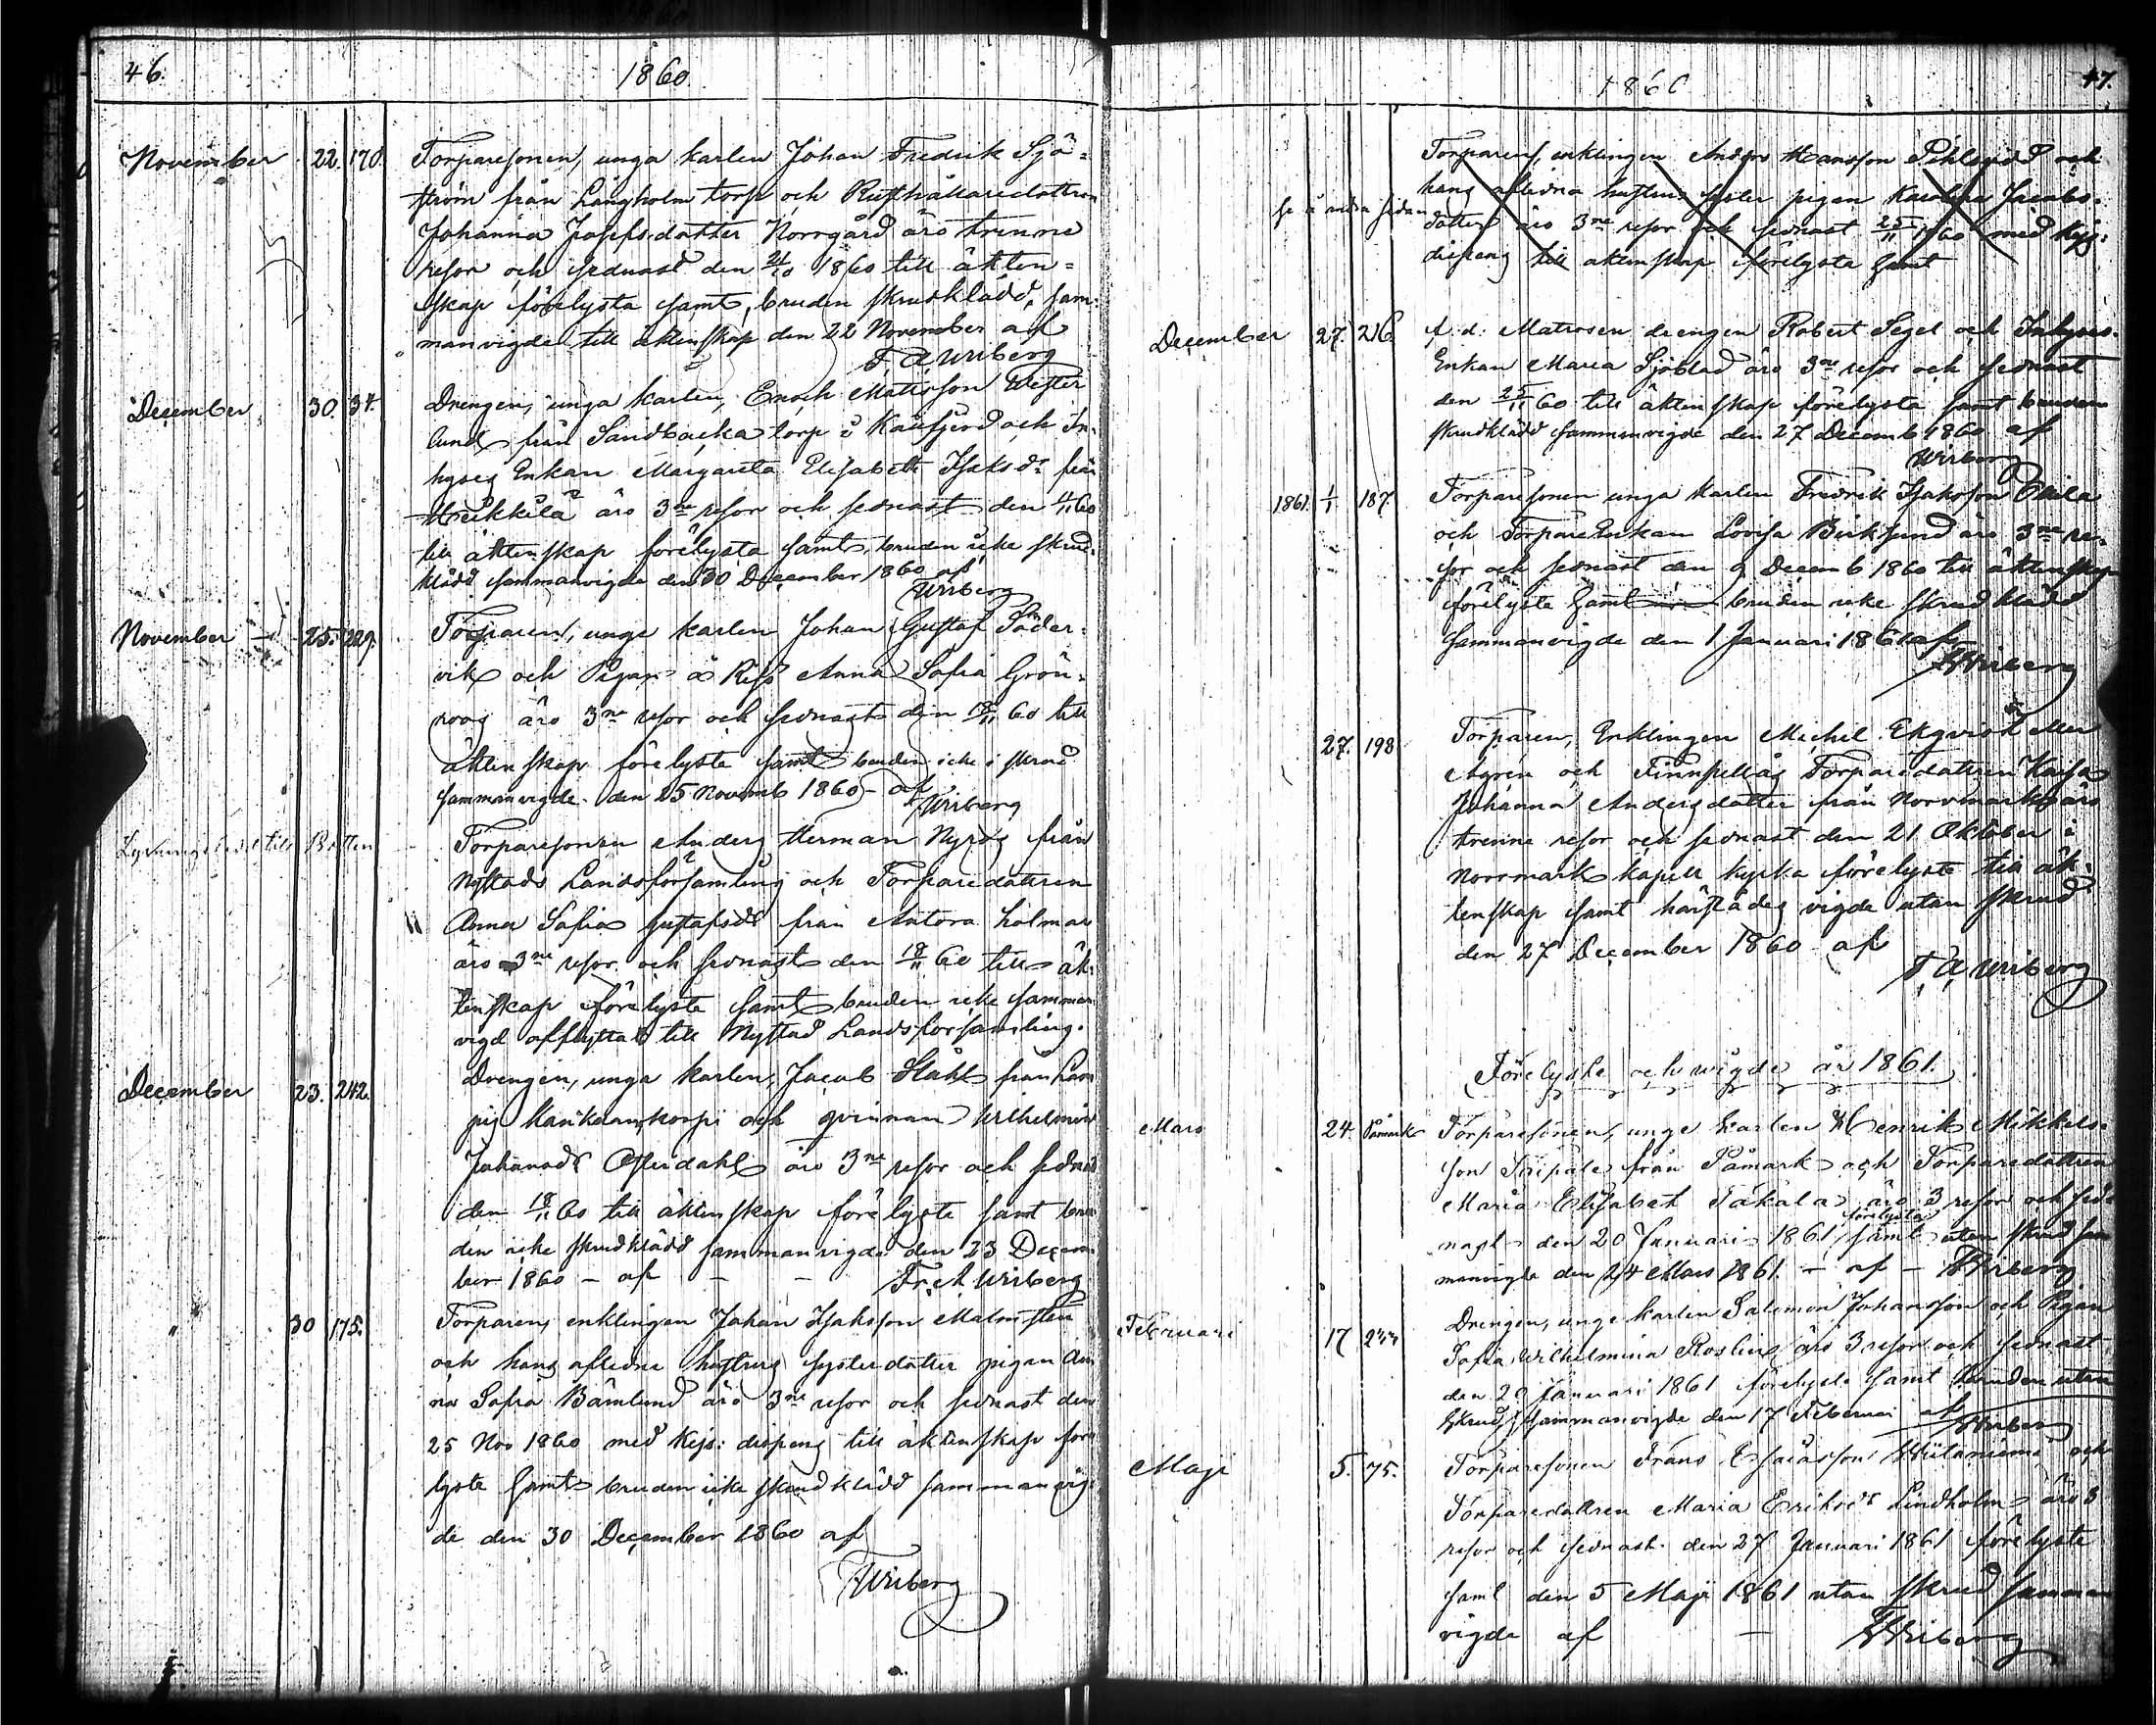 46.
1860.
November 22. 170. Torparesonen, unga karlen Johan Fredrik Sjö-
ström från Långholm torp och Rusthållaredottren
Johanna Josefsdotter Norrgård äro trenne
resor och sednast den 21/10 1860 till äkten-
skap förelysta samt, bruden skrudklädd, sam-
manvigde till äktenskap den 22 November af
F. A. Wriberg
December 30. 34. Drengen, unga karlen, Enoch Matsson Wester
lund från Sandbacka torp i Kåsfjerd och In-
hyses Enkan Margareta Elisabeth Isaksdr från
Heikkilä äro 3ne resor och sednast den 4/11 60
till äktenskap förelysta samt, bruden icke skrud-
klädd sammanvigde den 30 December 1860 af
Wriberg
November 25. 229. Torparen, unge karlen Johan Gustaf Söder-
vik och Pigan Anna Sofia Grön-
roos äro 3ne resor och sednast den 18/11 60 till
äktenskap förelyste samt bruden icke i skrud
sammanvigde den 25 Novemb 1860 - af
Wriberg
Torparesonen Anders Herman Nyroos från
Nystads Landsförsamling och Torparedottren
Anna Sofia Gustafsdr från Antora holmar
äro 3ne resor och sednast den 18/11 60 till äk-
tenskap förelyste samt bruden icke samman
vigd afflyttat till Nystad Landsförsamling.
December 23. 242. Drengen, unga karlen, Jacob Ståhl från Lam
pis och qvinnan Wilhelmina
Johansdr Osterdahl äro 3ne resor och sednast
den 18/11 60 till äktenskap förelyste samt bru
den icke skrudklädd sammanvigde den 23 Decem
ber 1860 - af - - Fr. A. Wriberg
" 30 175. Torparen, enklingen Johan Isaksson Malmsten
och hans aflidna hustrus systerdotter pigan An
na Sofia Bämlund äro 3ne resor och sednast den
25 Nov 1860 med Kejs: dispens till äktenskap före
lyste samt bruden icke skrudklädd sammanvig
de den 30 December 1860 af
Wriberg
1860
47.
Torparen, enklingen Anders Hansson Pihlquist och
hans aflidna hustrus syster pigan Karolina Jacobs-
se å andra sidan
dotter äro 3ne resor och sednast 25/11 1860 med Kejs:
dispens till äktenskap förelysta samt
December 27. 216. f. d. Matrosen drengen Robert Segel och Inhyses-
Enkan Maria Sjöblad äro 3ne resor och sednast
den 25/11 60 till äktenskap förelysta samt bruden
skrudklädd sammanvigde den 27 Decemb 1860 af
Wriberg
1861. 1/1 187. Torparesonen unga karlen Fredrik Isaksson
och Torpareenkan Lovisa Birklund äro 3ne re-
sor och sednast den 9 Decemb 1860 till äktenskap
förelyste samt bruden icke skrudklädd
sammanvigde den 1 Januari 1861 af
Wriberg
27. 198. Torparen, Enklingen Michel Ekqvist eller
Nygren och Torparedottren Kajsa
Johanna Andersdotter från Norrmark äro
trenne resor och sednast den 21 Oktober i
Norrmark kapell kyrka förelyste till äk-
tenskap samt härstädes vigde utan skrud
den 27 December 1860 af
F. A. Wriberg
Förelyste och wigde år 1861.
Mars 24. Påmark Torparesonen, unge karlen Henrik Mikkels-
son från Påmark och Torparedottren
Maria Elisabeth Takala äro 3 resor och sed-
nast den 20 Januari 1861 förelysta samt utan skrud sam
manvigde den 24 Mars 1861. - af - Wriberg
Februari 17 Drengen, unge karlen Salomon Johansson och Pigan
Sofia Wilhelmina Roslin äro 3 resor och sednast
den 20 Januari 1861 förelyste samt bruden utan
skrud sammanvigde den 17 Februari af
Wriberg
Maji 5. 75. Torparesonen Frans Esaiasson och
Torparedottren Maria Eriksdr Lindholm äro 3
resor och sednast den 27 Januari 1861 förelyste
samt den 5 Maji 1861 utan skrud samman
vigde af - Wriberg